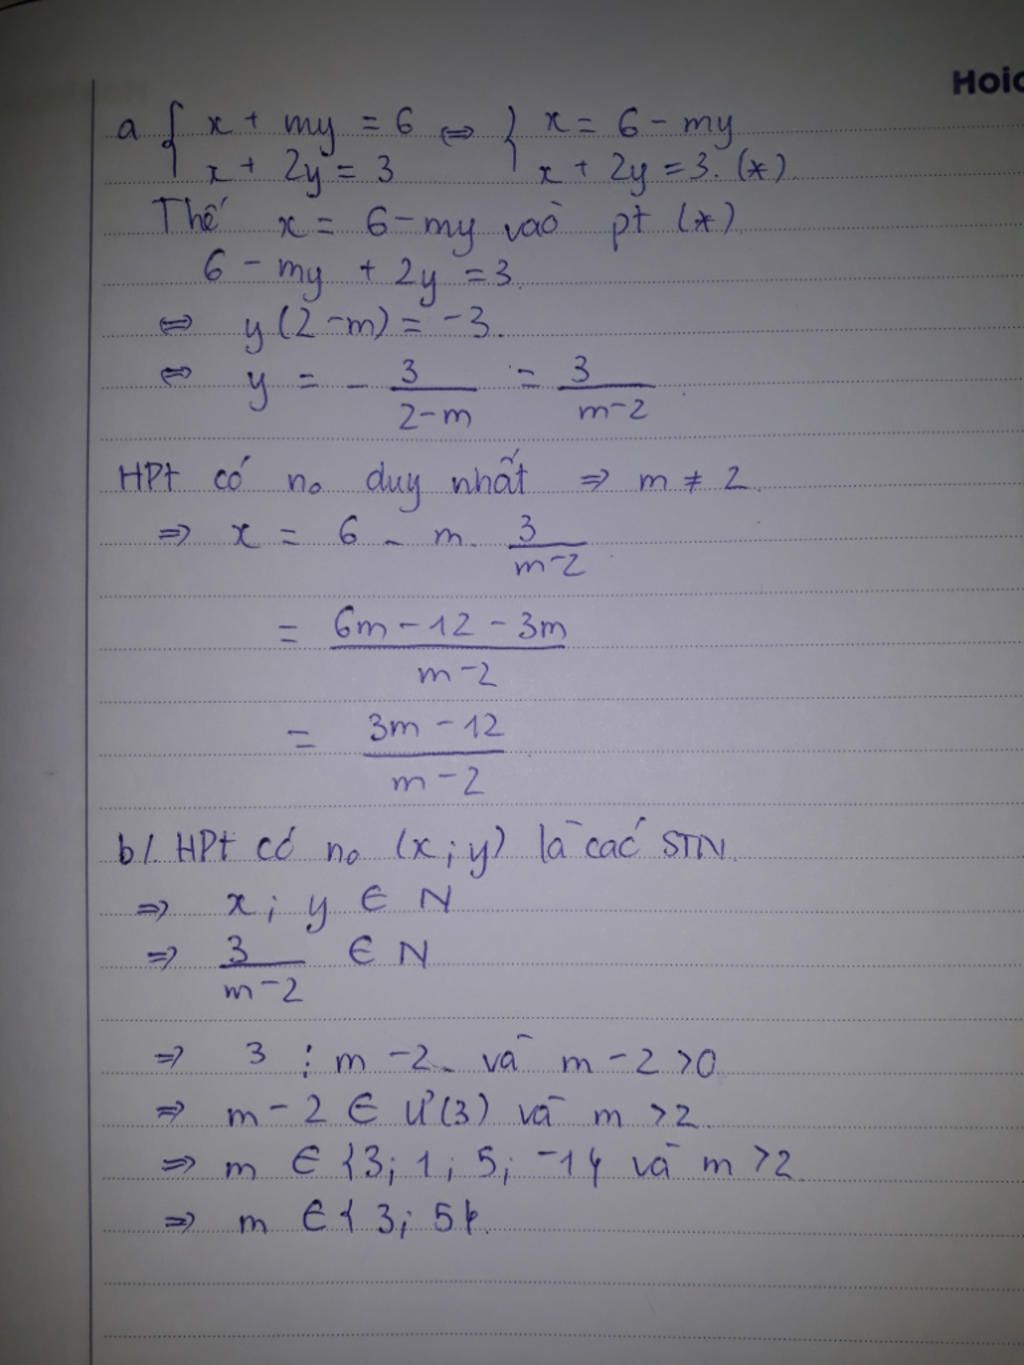 Hoic
a { x + my = 6 ⇔ { x = 6 - my
x + 2y = 3 x + 2y = 3. (*)
Thế x = 6 - my vào pt (*)
6 - my + 2y = 3.
⇔ y(2 - m) = -3.
⇔ y = - 3/(2-m) = 3/(m-2).
HPt có no duy nhất ⇒ m ≠ 2.
⇒ x = 6 - m. 3/(m-2)
= (6m - 12 - 3m)/(m-2)
= (3m - 12)/(m-2)
b/. HPt có no (x; y) là các STN.
⇒ x; y ∈ N
⇒ 3/(m-2) ∈ N
⇒ 3 ⋮ m - 2. và m - 2 > 0
⇒ m - 2 ∈ Ư(3) và m > 2.
⇒ m ∈ {3; 1; 5; -1} và m > 2.
⇒ m ∈ {3; 5}.